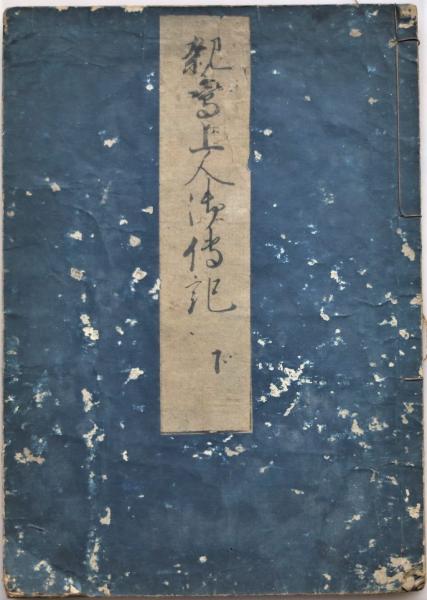 親鸞上人御傳記
下